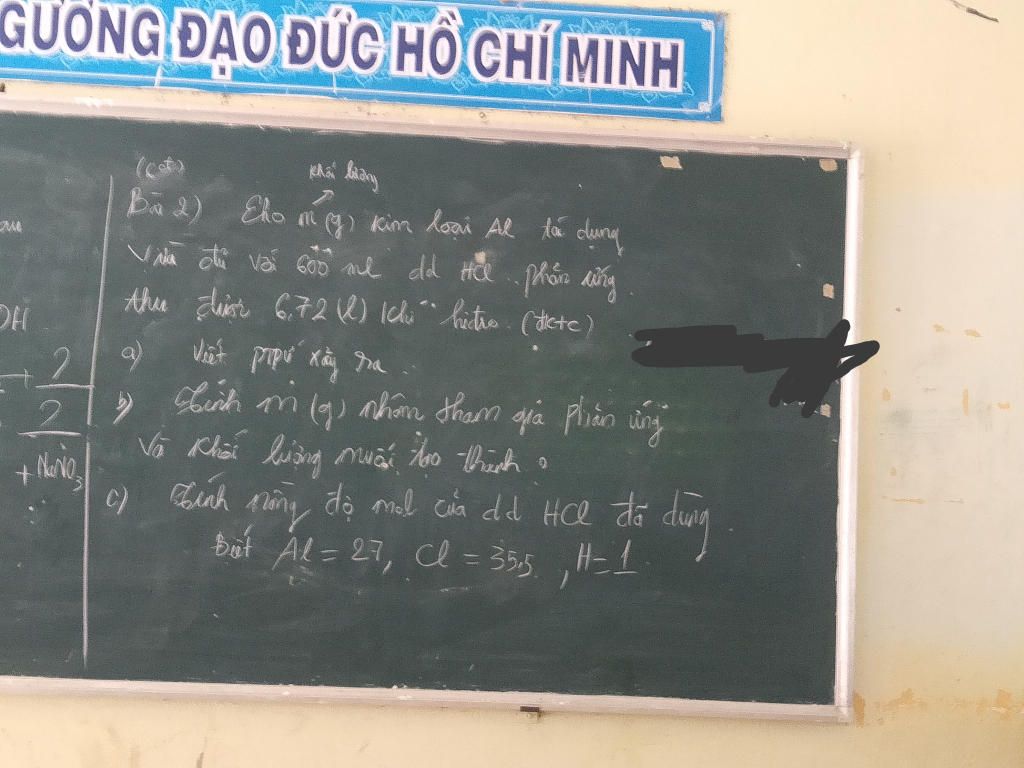 GƯƠNG ĐẠO ĐỨC HỒ CHÍ MINH
khối lượng
Bài 2) Cho m (g) kim loại Al tá dụng
vừa đủ với 600 ml dd HCl phản ứng
thu được 6,72 (l) khí hiđro (đktc)
a) Viết ptpứ xảy ra.
b) Tính m (g) nhôm tham gia phản ứng
và khối lượng muối tạo thành.
c) Tính nồng độ mol của dd HCl đã dùng.
Biết Al = 27, Cl = 35,5, H = 1
OH
2
2
+ NaNO3